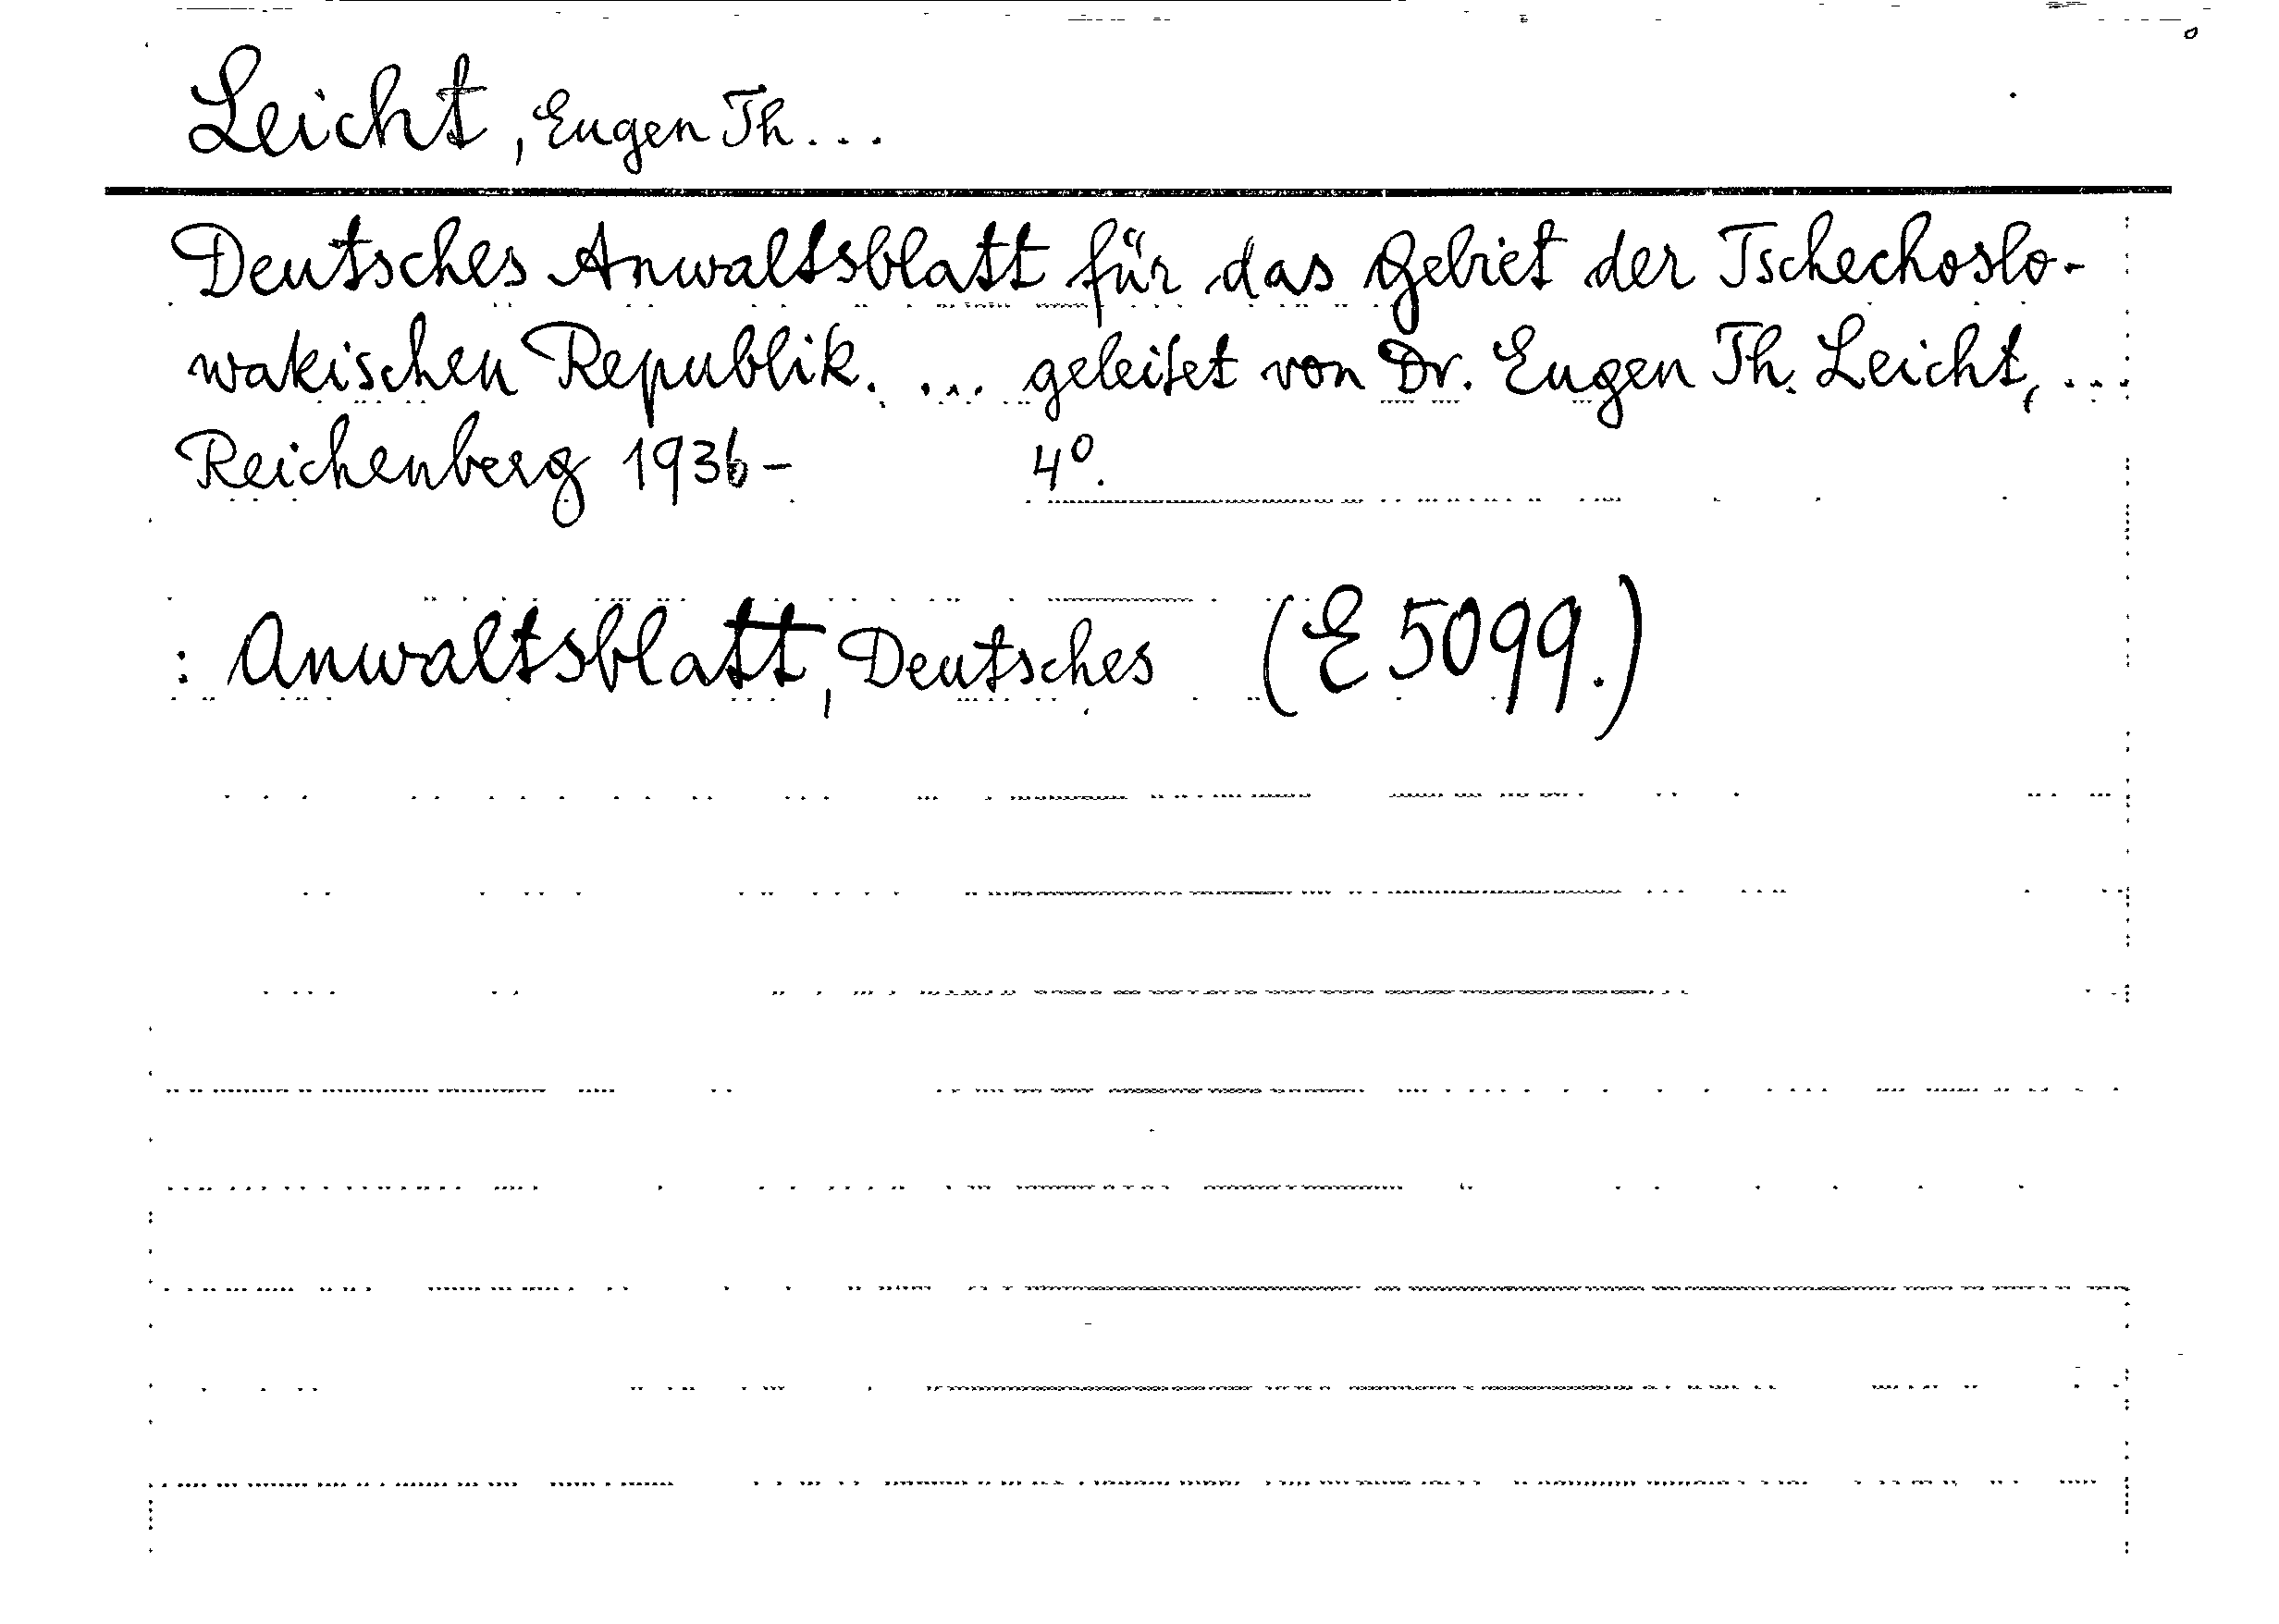 Leicht, Eugen Th...
Deutsches Anwaltsblatt für das Gebiet der Tschechoslo-
wakischen Republik. ... geleitet von Dr. Eugen Th. Leicht, ...
Reichenberg 1936- 4º.
: Anwaltsblatt, Deutsches (E 5099.)